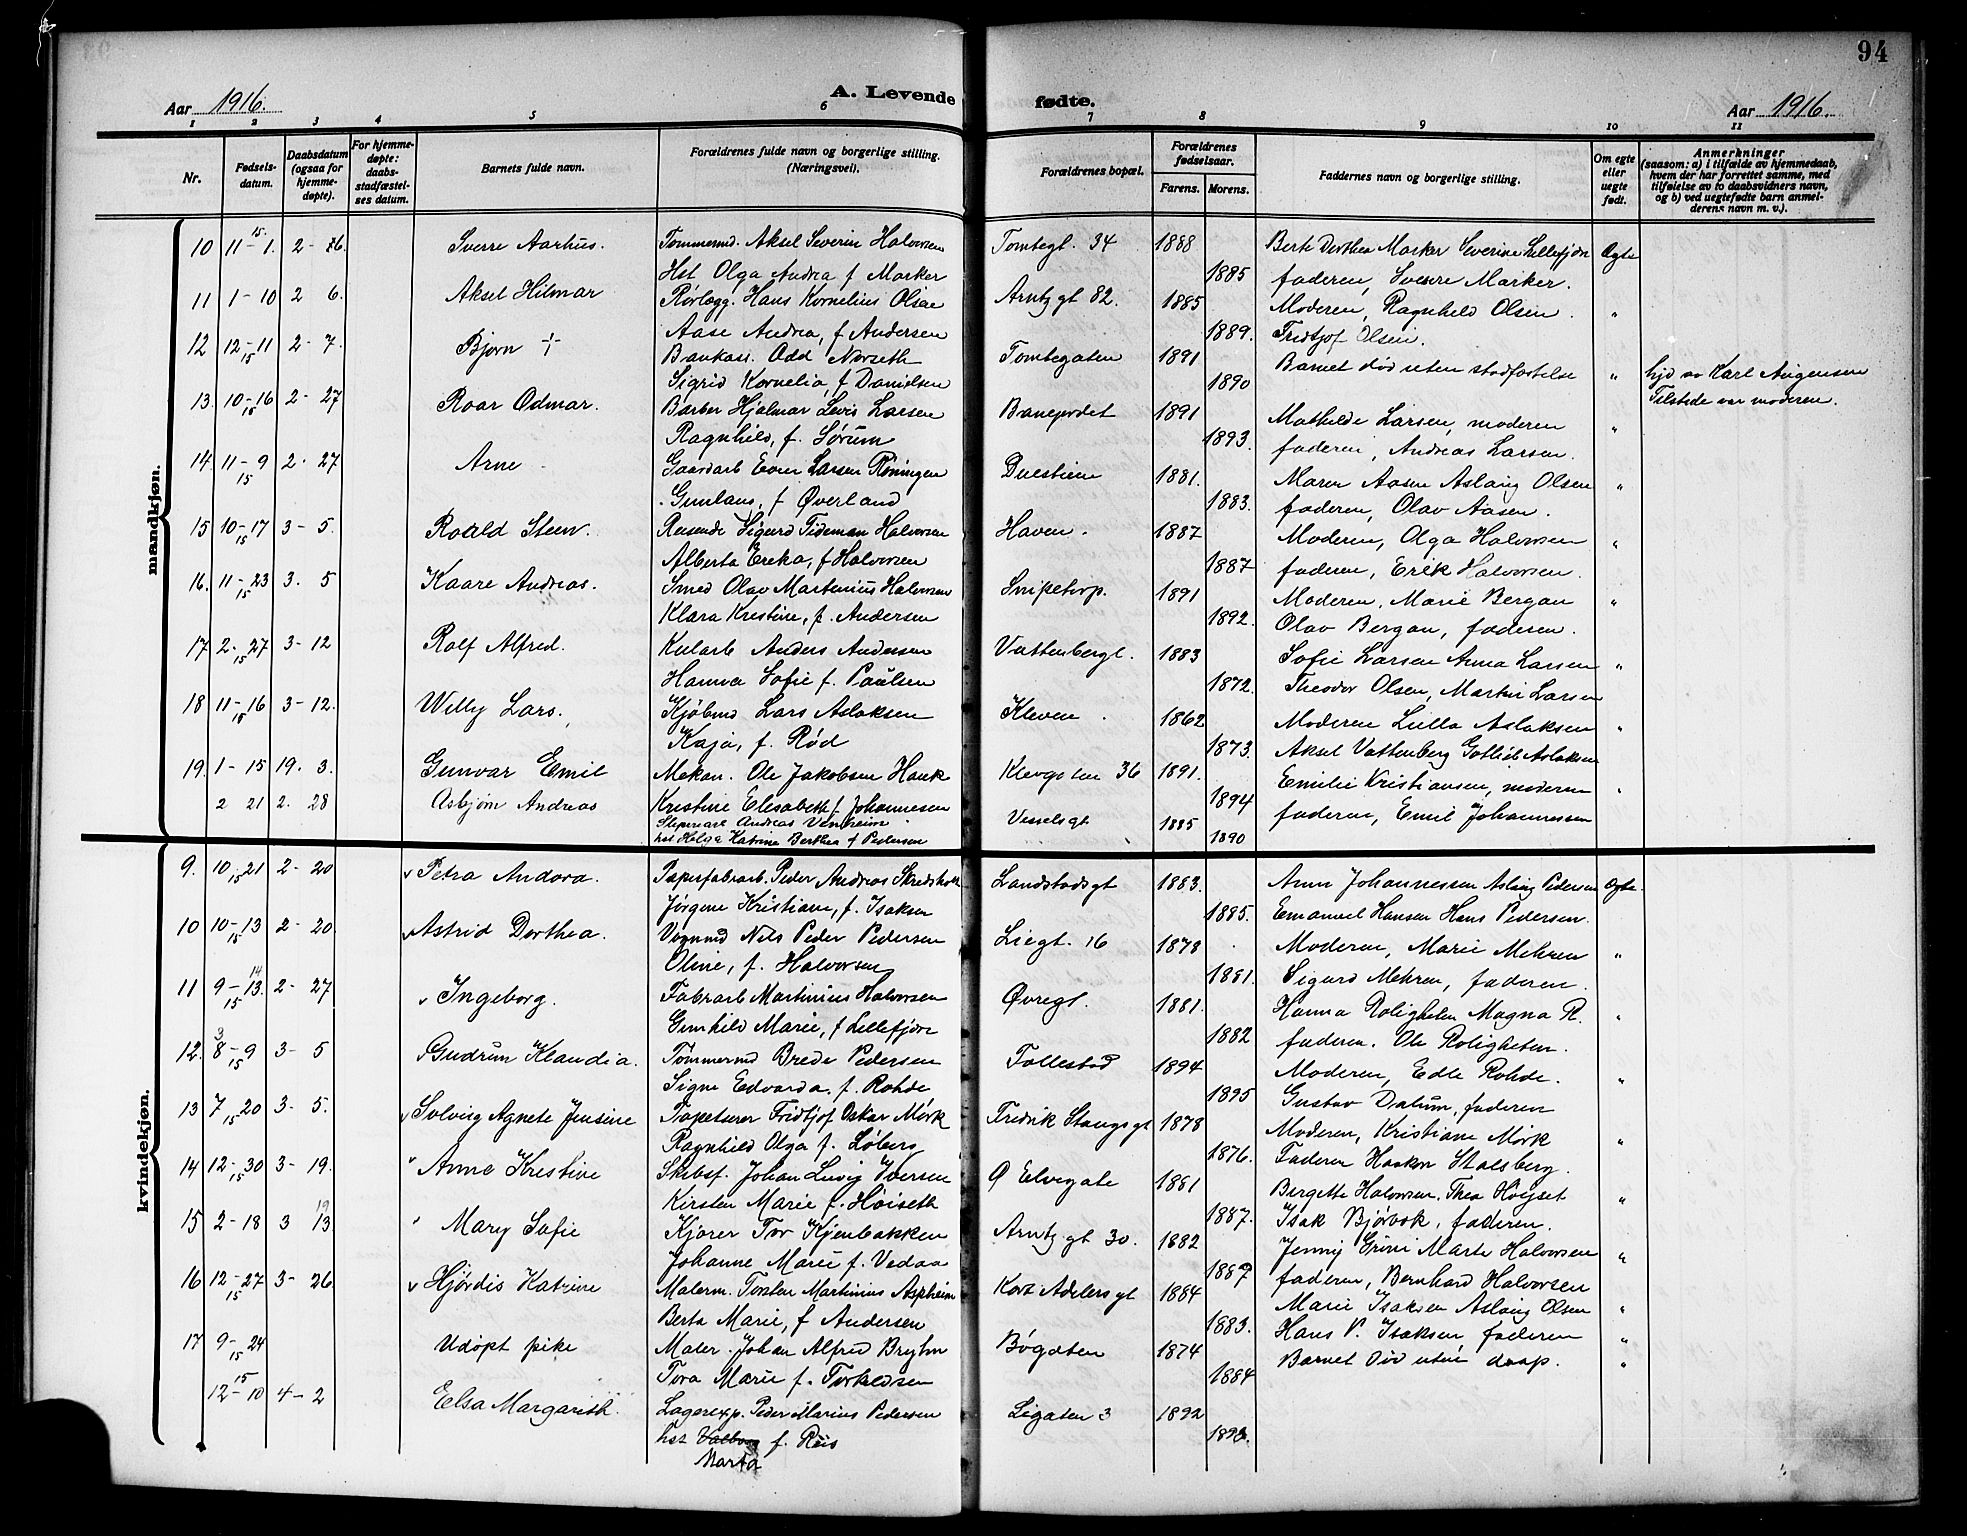 94
Aar 1916. A. Levende fødte. Aar 1916.
1 2 3 4 5 6 7 8 9 10 11
Nr. Fødsels-datum. Daabsdatum (ogsaa for hjemme-døpte). For hjemme-døpte: daabs-stadfæstel-ses datum. Barnets fulde navn. Forældrenes fulde navn og borgerlige stilling. (Næringsvei). Forældrenes bopæl. Forældrenes fødselsaar. Farens. Morens. Faddernes navn og borgerlige stilling. Om egte eller uegte født. Anmerkninger (saasom: a) i tilfælde av hjemmedaab, hvem der har forrettet samme, med tilføielse av to daabsvidners navn, og b) ved uegtefødte barn anmel-derens navn m. v.).
mandkjøn.
10 11-15 1. 2-26. Sverre Aarhus. Tømmermd. Aksel Severin Halvorsen Tomtegt. 34 1888 Berte Dorthea Marker Severine Lillefjære Egte
Hst Olga Andrea f Marker 1885 faderen, Sverre Marker.
11 1-10 2 6. Aksel Hilmar Rørlegg. Hans Kornelius Olsen Arntz gt 82. 1885 Moderen, Ragnhild Olsen. "
Aase Andrea, f Andersen 1889. Fridtjof Olsen.
12 12-11 15 2-7. Bjørn + Bankass. Odd Norseth Tomtegaten 1891 Barnet død uten stadfæstelse " hjd av Karl Augensen
Sigrid Kornelia, f Danielsen 1890 Tilstede var moderen.
13. 10-16 15 2-27 Roar Odmar. Barber Hjalmar Levis Larsen 1891 Mathilde Larsen, moderen "
Ragnhild, f. Sørum 1893. faderen, Andreas Larsen.
14. 11-9 15 2-27 Arne Gaardarb Even Larsen Røningen Duestien 1881. Maren Aasen Aslaug Olsen "
Gunlaug, f Øverland 1883. faderen, Olav Aasen.
15 10-17 15 3-5. Roald Steen. Reisende Sigurd Tideman Halvorsen Haven. 1887 Moderen, Olga Halvorsen "
Alberta Ereka, f Halvorsen 1887 faderen, Erik Halvorsen.
16. 11-23 15 3. 5 Kaare Andreas. Smed Olav Martinius Halvorsen Snipetorp. 1891 Moderen, Marie Bergan "
Klara Kristine, f. Andersen 1892. Olav Bergan, faderen.
17 2-27 15 3-12 Rolf Alfred. Kularb Anders Andersen Vattenbergt. 1883 Sofie Larsen Anna Larsen "
Hanna Sofie f. Paulsen 1872. Theodor Olsen, Martin Larsen
18 11-16 15 3-12. Willy Lars. Kjøbmd Lars Aslaksen Kleven. 1862 Moderen Lulla Aslaksen "
Kaja, f. Rød 1873. Aksel Vattenberg Gotlieb Aslaksen
19. 1-15 19. 3. Gunvar Emil Mekan. Ole Jakobsen Hauk Klevgaten 36 1891. Emilie Kristiansen, moderen "
2 21 2. 28 Asbjørn Andreas Kristine Elisabeth f. Johannesen 1894 faderen, Emil Johannessen
Andreas Venheim Vesselsgt 1885
hst Helga Katrine Berthea f Pedersen 1890
kvindekjøn.
9. 10 21 15 2-20 Petra Andora. Papirfabrarb. Peder Andreas Landstadsgt 1883. Anna Johannessen Aslaug Pedersen Egte.
Jørgene Kristiane, f. Isaksen 1885. Emanuel Hansen Hans Pedersen.
10 10-13 15 2-20 Astrid Dorthea. Vognmd Nils Peder Pedersen Liegt. 16 1878 Moderen, Marie Mehren "
Oline, f. Halvorsen 1881. Sigurd Mehren, faderen.
11 9-13. 14 15 2-27 Ingeborg. Fabrarb Martinius Halvorsen Øvregt. 1881. Hanna Roligheten Magna R. "
Gunhild Marie, f Lillefjære 1882 faderen. Ole Roligheten.
12. 3 8-9 15 3-5 Gudrun Klaudia. Tømmermd Brede Pedersen Follestad 1894 Moderen, Edle Rohde. "
Signe Edvarda, f. Rohde 1895 Gustav Dalum, faderen
13 7 20 15 3-5. Solveig Agnete Jensine Tapetserer Fridtjof Oskar Mørk Fredrik Stangsgt 1878 Moderen, Kristiane Mørk "
Ragnhild Olga f. Løberg 1876. Faderen Haakon Stalsberg.
14 12-30 15 3-19. Anne Kristine Skibsf. Johan Luvig Iversen Ø Elvegate 1881 Birgette Halvorsen. Thea Høiset "
Kirsten Marie f. Høiseth 1887. Isak Bjørbok, faderen.
15 2-18 3 13 19 Mary Sofie Kjører Tor Kjenbakken Arntz gt 30. 1882 Jenny Grini Marte Halvorsen "
Johanne Marie f. Vedaa 1887 faderen, Bernhard Halvorsen
16 12-27 15 3-26 Hjørdis Katrine Malerm. Torsten Martinius Aspheim Kort Adelersgt 1884 Marie Isaksen Aslaug Olsen "
Berta Marie, f Andersen 1883. Hans P. Isaksen faderen
17 9-24 15 Udøpt pike Maler. Johan Alfred Bryhn Bøgaten 1874 Barnet død uten daap. "
Tora Marie f. Torkildsen 1884
12-10 15 4-2 Eelsa Margareth. Lagerexp. Peder Marius Pedersen Ligaten 3 1892
hst Valborg f. Riis
Marta